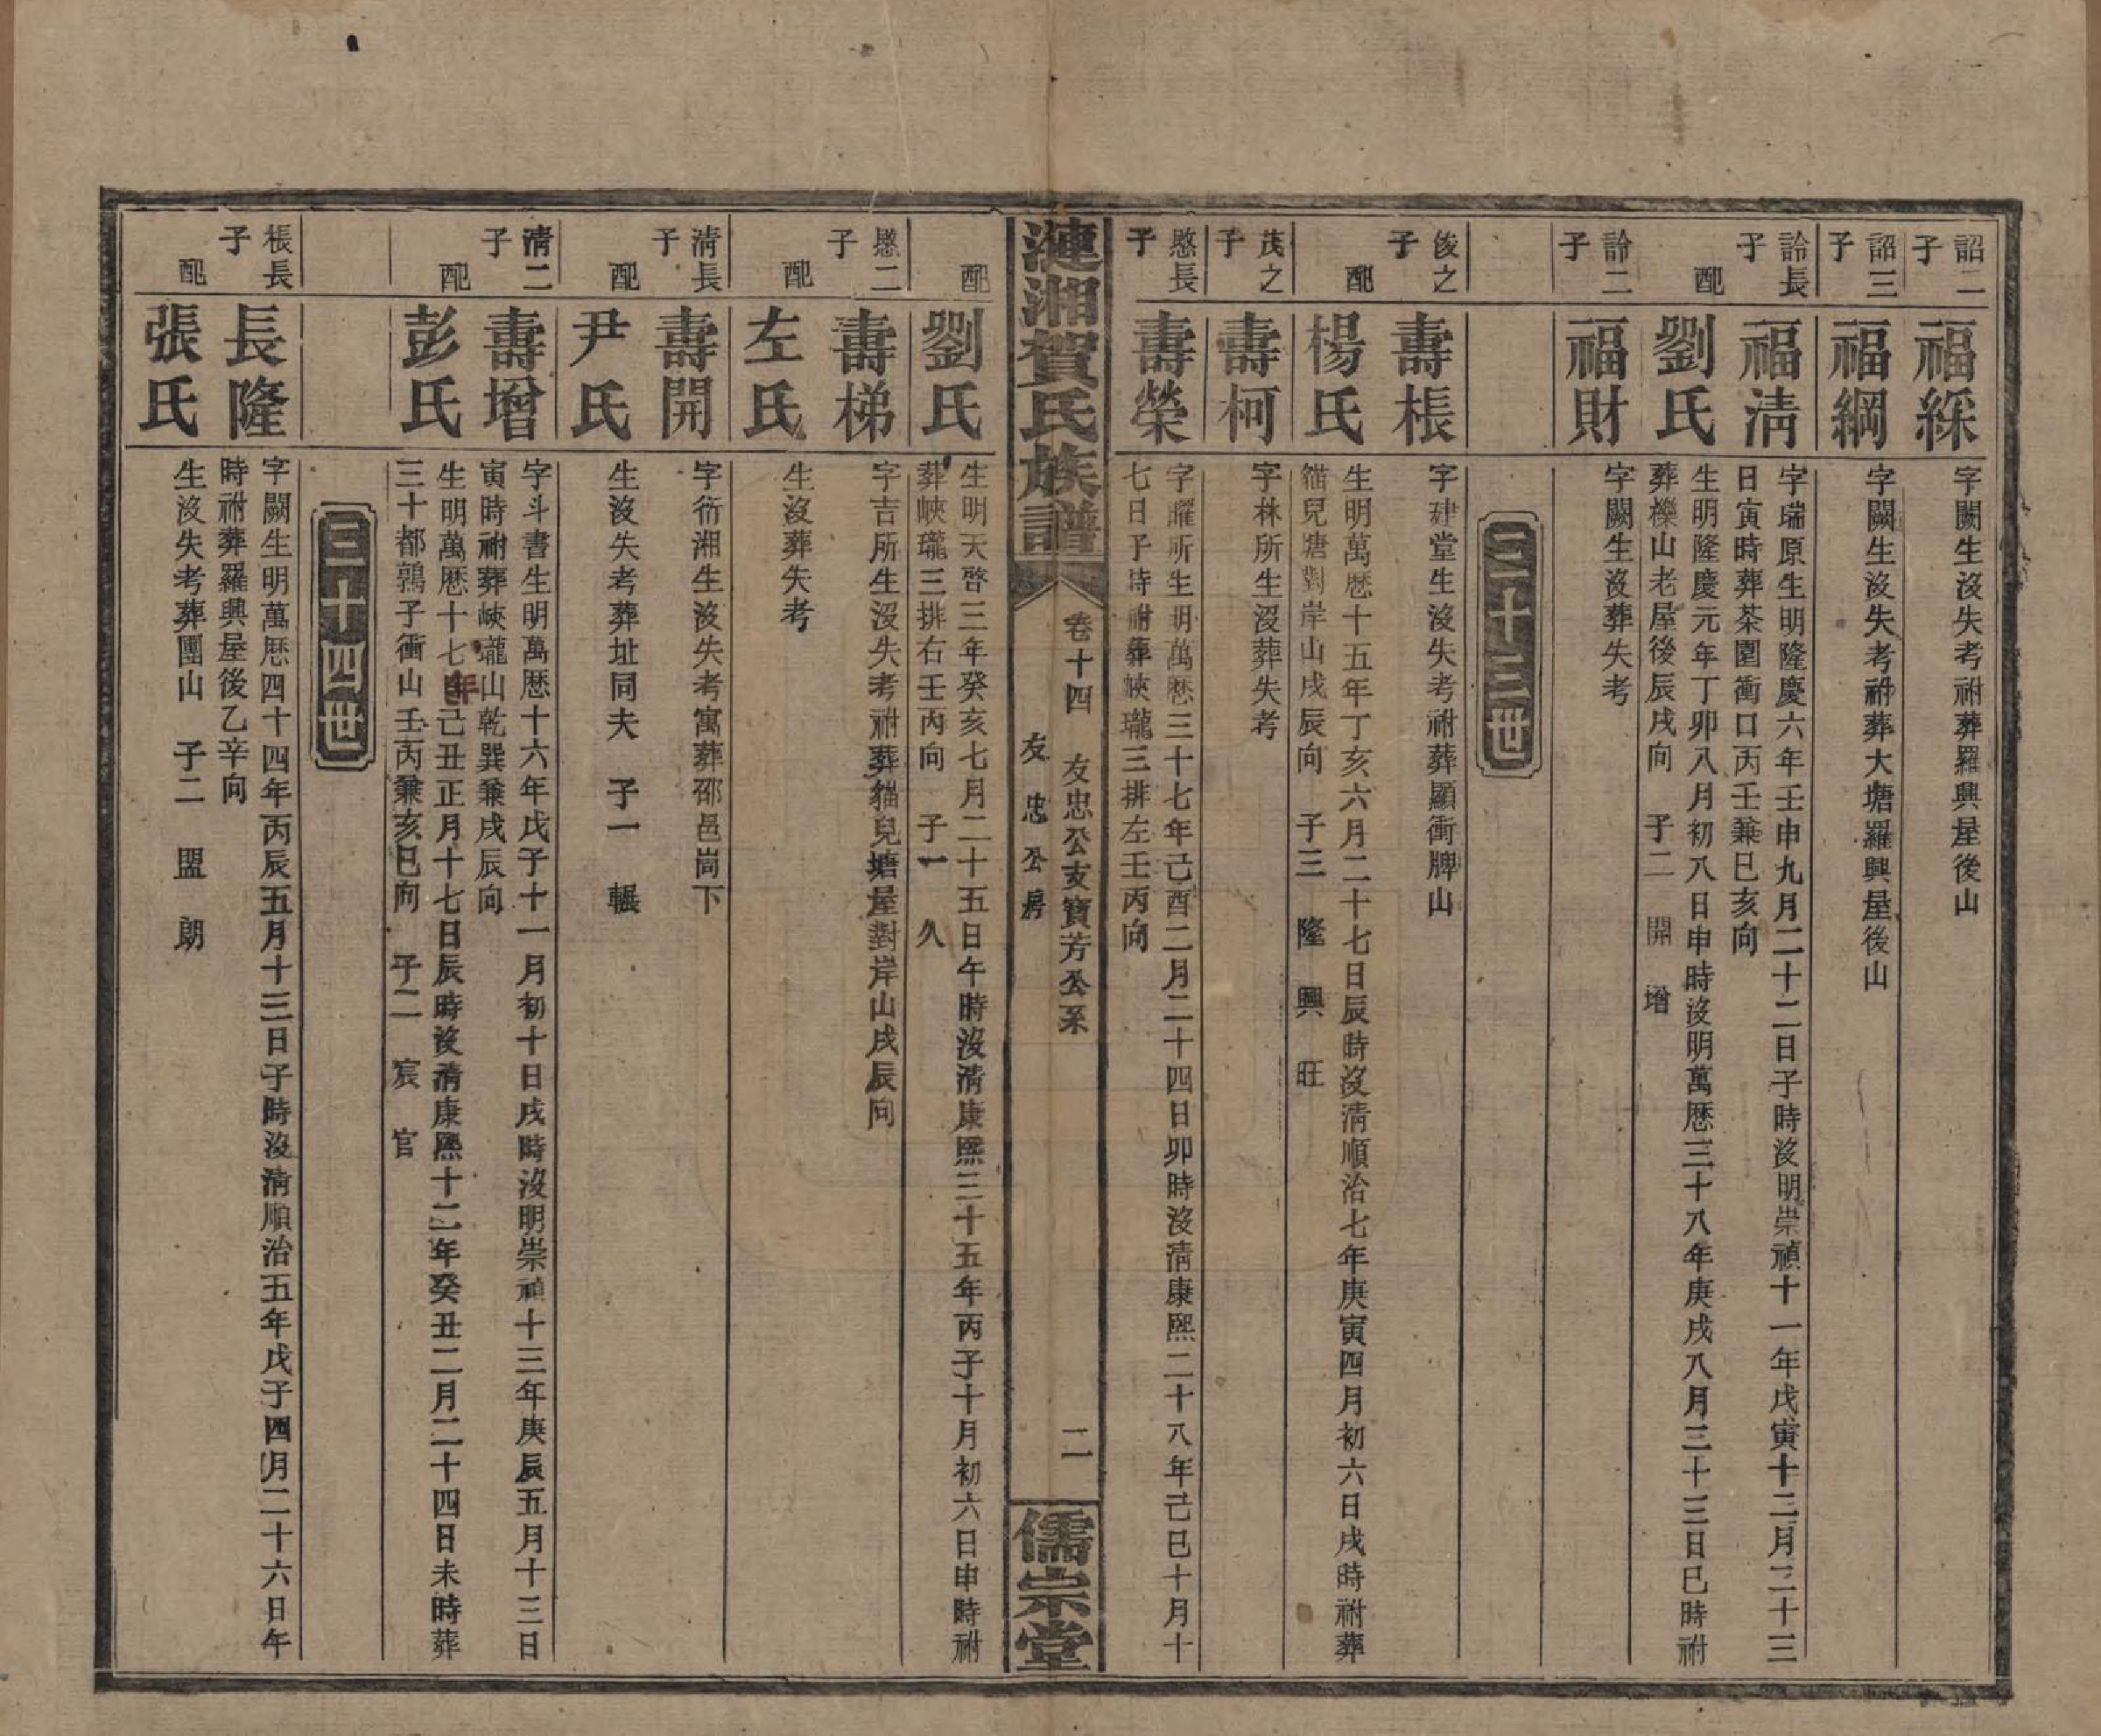 詔二子
福綵
字闕生沒失考祔葬羅興屋後山
詔三子
福綱
字闕生沒失考祔葬大塘羅興屋後山
論長子
福清
字瑞原生明隆慶六年壬申九月二十二日子時沒明崇禎十一年戊寅十二月二十三
日寅時葬茶園衝口丙壬兼巳亥向
配
劉氏
生明隆慶元年丁卯八月初八日申時沒明萬歷三十八年庚戌八月三十三日巳時祔
葬櫟山老屋後辰戌向 子二 開 增
論二子
福財
字闕生沒葬失考
三十三世
俊之子
壽棖
字建堂生沒失考祔葬顯衝脾山
配
楊氏
生明萬歷十五年丁亥六月二十七日辰時沒清順治七年庚寅四月初六日戌時祔葬
貓兒塘對岸山戌辰向 子三 隆 興 旺
茂之子
壽柯
字林所生沒葬失考
愍長子
壽榮
字曜所生明萬歷三十七年己酉二月二十四日卯時沒清康熙二十八年己巳十月十
七日子時祔葬峽瓏三排左壬丙向
漣湘賀氏族譜
卷十四 友忠公支寶芳公系
友忠公房
二
儒宗堂
配
劉氏
生明天啓三年癸亥七月二十五日午時沒清康熙三十五年丙子十月初六日申時祔
葬峽瓏三排右壬丙向 子一 久
愍二子
壽梯
字吉所生沒失考祔葬貓兒塘屋對岸山戌辰向
配
左氏
生沒葬失考
清長子
壽開
字衜湘生沒失考寓葬邵邑崗下
配
尹氏
生沒失考葬址同夫 子一 輾
清二子
壽增
字斗書生明萬歷十六年戊子十一月初十日戌時沒明崇禎十三年庚辰五月十三日
寅時祔葬峽瓏山乾巽兼戌辰向
配
彭氏
生明萬歷十七年己丑正月十七日辰時沒清康熙十二年癸丑二月二十四日未時葬
三十都鶉子衝山壬丙兼亥巳向 子二 宸 官
三十四世
棖長子
長隆
字闕生明萬歷四十四年丙辰五月十三日子時沒清順治五年戊子四月二十六日午
時祔葬羅興屋後乙辛向
配
張氏
生沒失考葬團山 子二 盟 朗